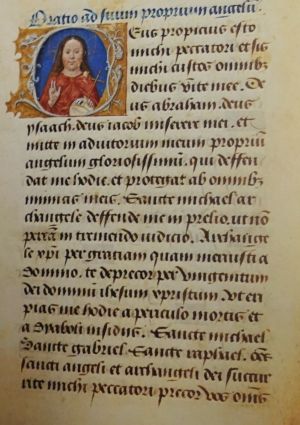 Oratio ad suum proprium angelū.
Deus propicius esto
michi peccatori et sis
michi custos omnibꝫ
diebus vite mee. De
us abraham. deus
ysaach. deus iacob miserere mei. et
mitte in adiutorium meum propriū
angelum gloriosissimū. qui deffen
dat me hodie. et protegat ab omnibꝫ
inimicis meis. Sancte michael ar
changele deffende me in prelio. ut nō
peream in tremendo iudicio. Archange
le xp̄i per gratiam quam meruisti a
domino. te deprecor per unigenitum
dei dominū ihesum xpristum. ut eri
pias me hodie a periculo mortis et
a dyaboli insidiis. Sancte michael
Sancte gabriel. Sancte raphael. oēs
sancti angeli et archangeli dei succur
rite michi peccatori precor vos omēs